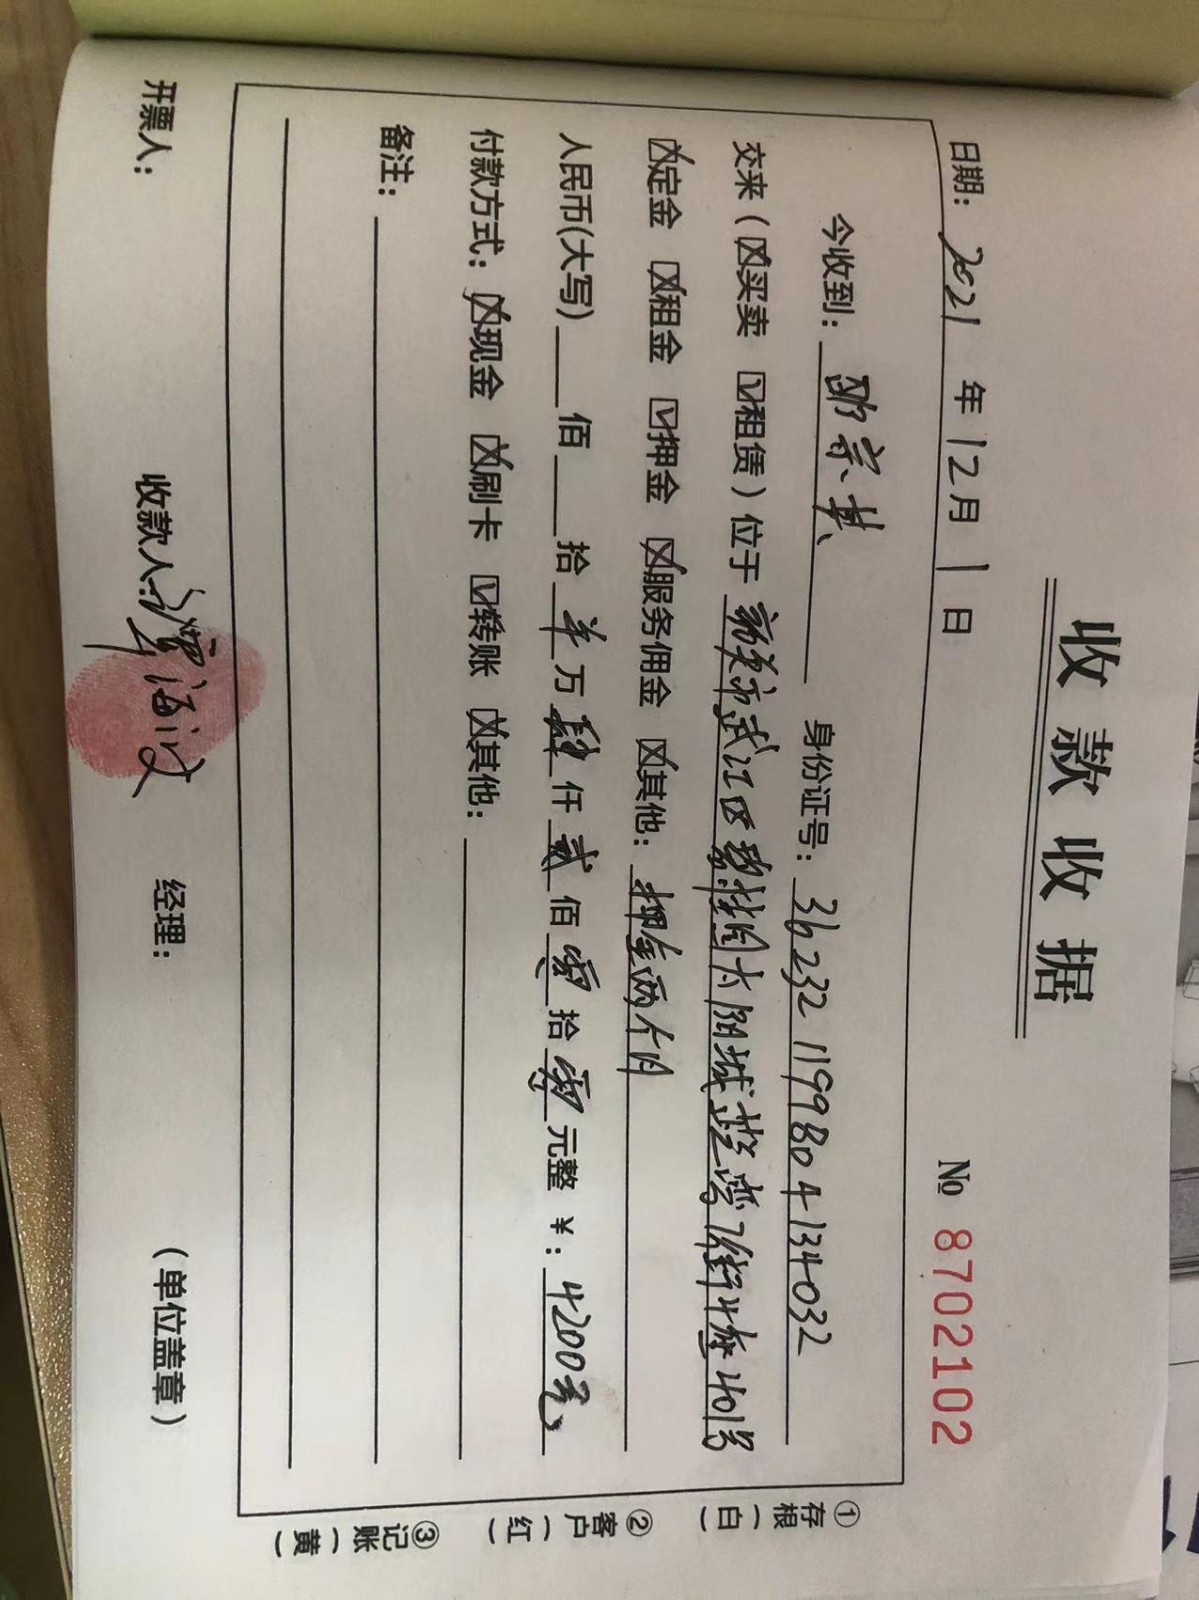 收款收据
日期: 2021 年 12月 1 日 № 8702102
今收到: 宗 身份证号: 362321199804134032
交来(☒买卖 ☑租赁)位于 市武江区 太阳城 401号
☒定金 ☒租金 ☑押金 ☒服务佣金 ☒其他: 押金两个月
人民币(大写) 佰 拾 万 肆 仟 贰 佰 零 拾 零 元整 ¥: 4200元
付款方式: ☒现金 ☒刷卡 ☑转账 ☒其他:
备注:
开票人: 收款人: 海 经理: (单位盖章)
①存根(白)
②客户(红)
③记账(黄)